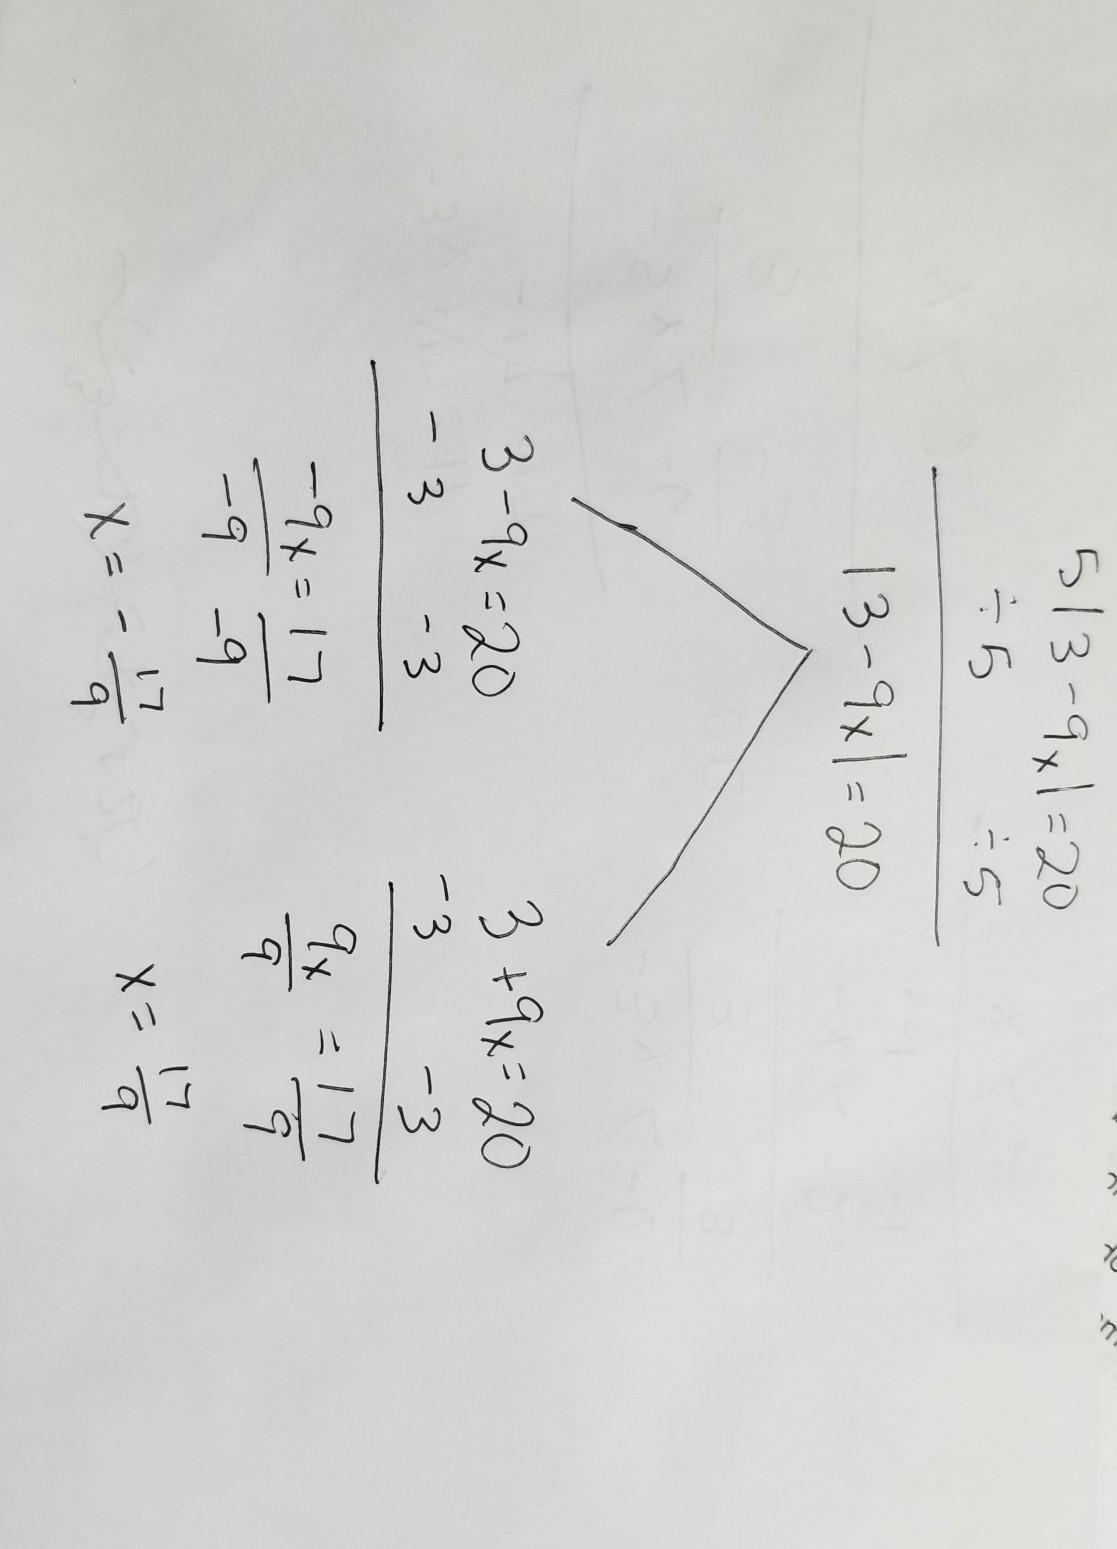 5|3-9x|=20
÷5 ÷5
|3-9x|=20
3-9x=20
-3 -3
-9x=17
-9 -9
x=-17/9
3+9x=20
-3 -3
9x=17
9 9
x=17/9